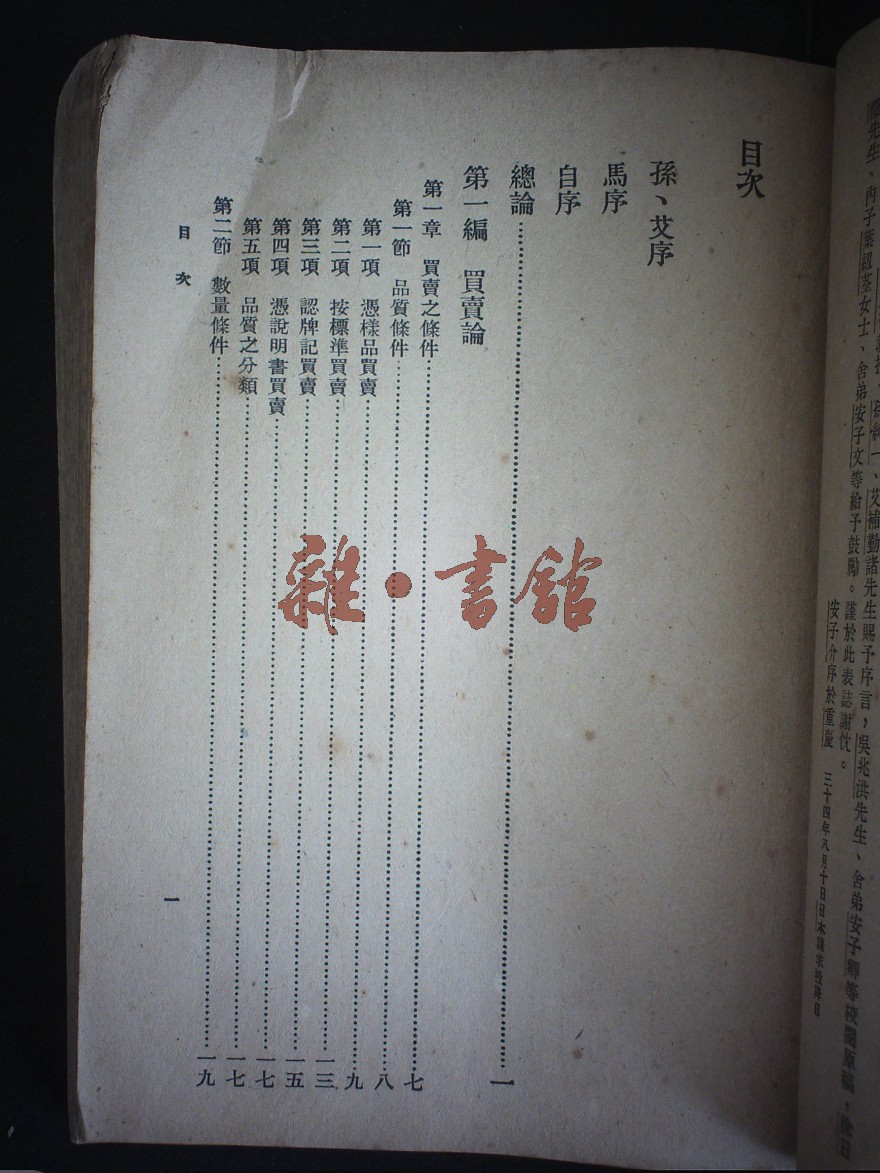 艾補勤諸先生賜予序言，吳兆洪先生、舍弟安子卿等校閱原稿，
先生、內子葉女士、舍弟安子文等給予鼓勵。謹於此表誌謝忱。
安子介序於重慶 三十四年八月十日日本請求投降日
目次
孫、艾序
馬序
自序
總論……一
第一編 買賣論
第一章 買賣之條件……七
第一節 品質條件……八
第一項 憑樣品買賣……九
第二項 按標準買賣……一三
第三項 認牌記買賣……一五
第四項 憑說明書買賣……一七
第五項 品質之分類……一七
第二節 數量條件……一九
目次
一
雜·書館